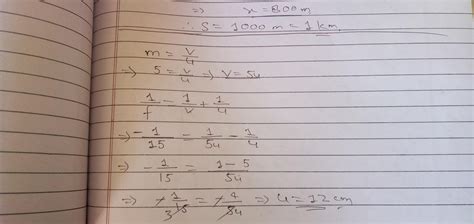 ⇒ x = 800m
∴ S = 1000m = 1 km
m = v/u
⇒ 5 = v/u ⇒ v = 5u
1/f = 1/v + 1/u
⇒ -1/15 = 1/5u - 1/u
⇒ -1/15 = 1-5/5u
⇒ -1/3 15 = -4/5u ⇒ u = 12 cm